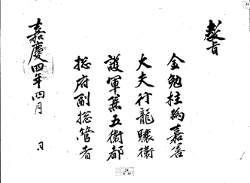 敎旨
金勉柱爲嘉善
大夫行龍驤衛
護軍兼五衛都
摠府副摠管者
嘉慶四年四月 日